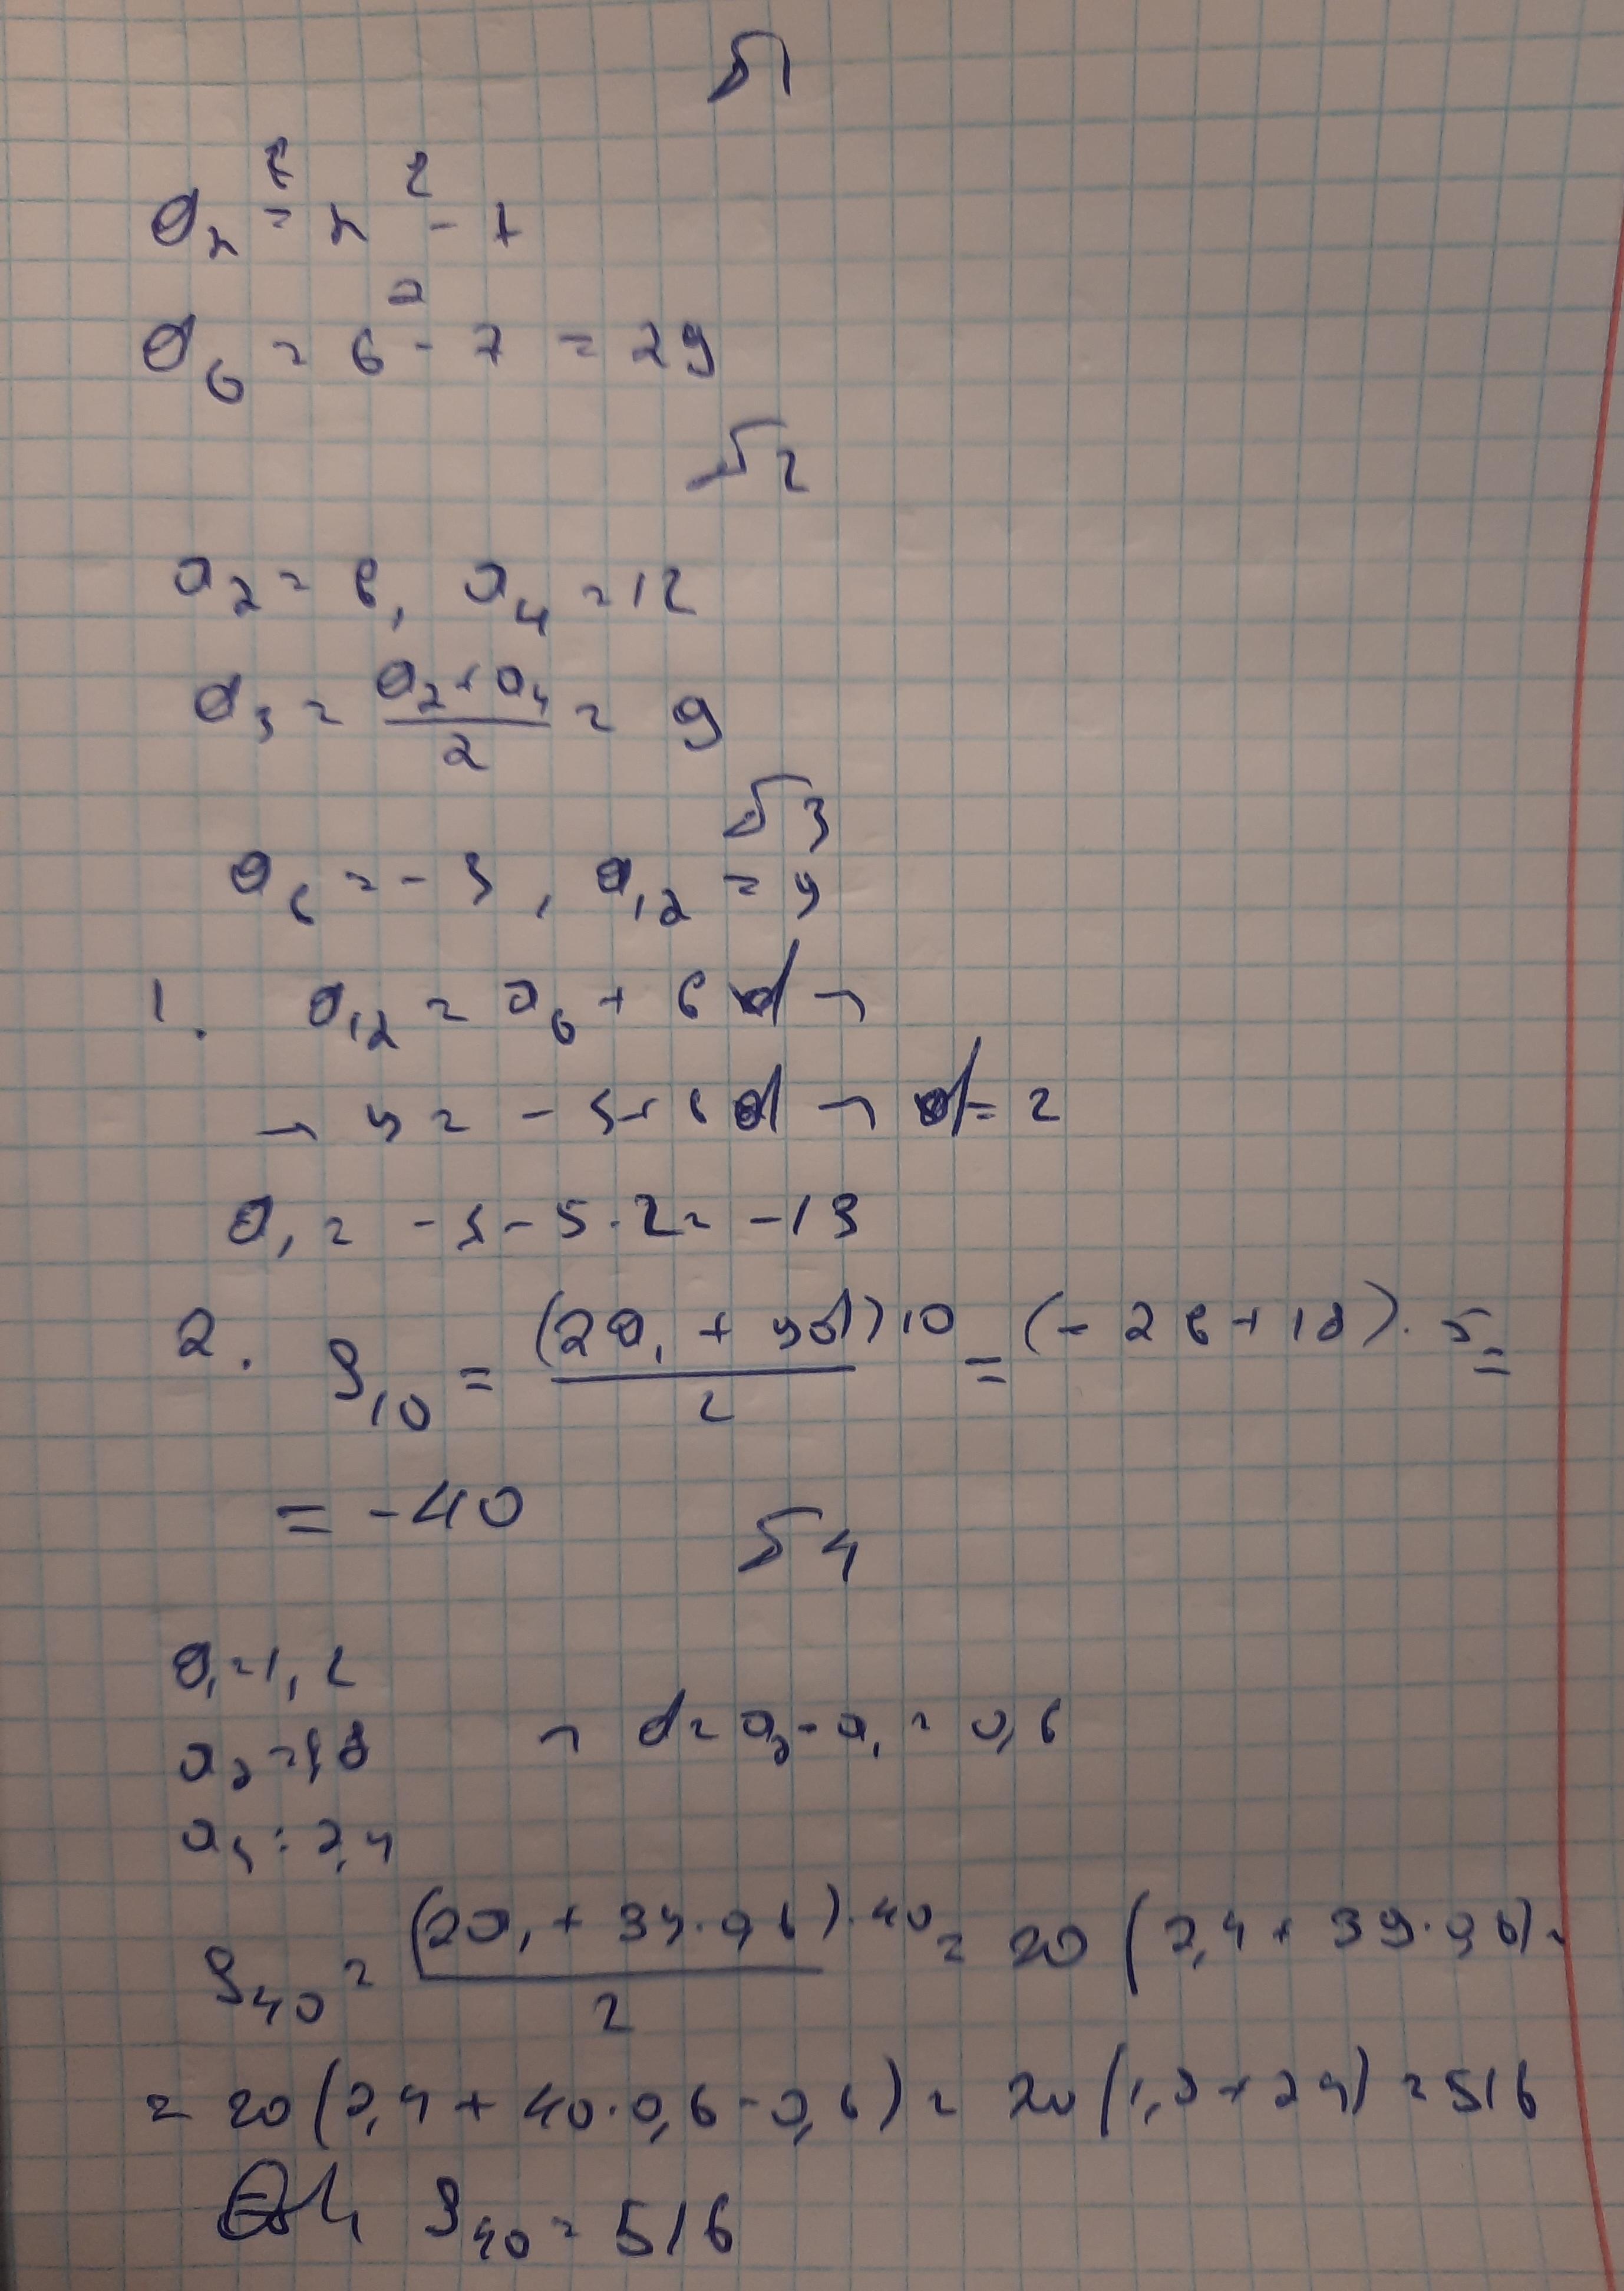 √1
a_n = n² - 7
a_6 = 6² - 7 = 29
√2
a_2 = 6, a_4 = 12
a_3 = (a_2 + a_4)/2 = 9
√3
a_6 = -3, a_12 = 9
1. a_12 = a_6 + 6d →
→ 9 = -3 + 6d → d = 2
a_1 = -3 - 5·2 = -13
2. S_10 = ((2a_1 + 9d)10)/2 = (-26 + 18)·5 =
= -40
√4
a_1 = 1,2
a_2 = 1,8 → d = a_2 - a_1 = 0,6
a_3 = 2,4
S_40 = ((2a_1 + 39·0,6)·40)/2 = 20(2,4 + 39·0,6) =
= 20(2,4 + 40·0,6 - 0,6) = 20(1,8 + 24) = 516
S_40 = 516